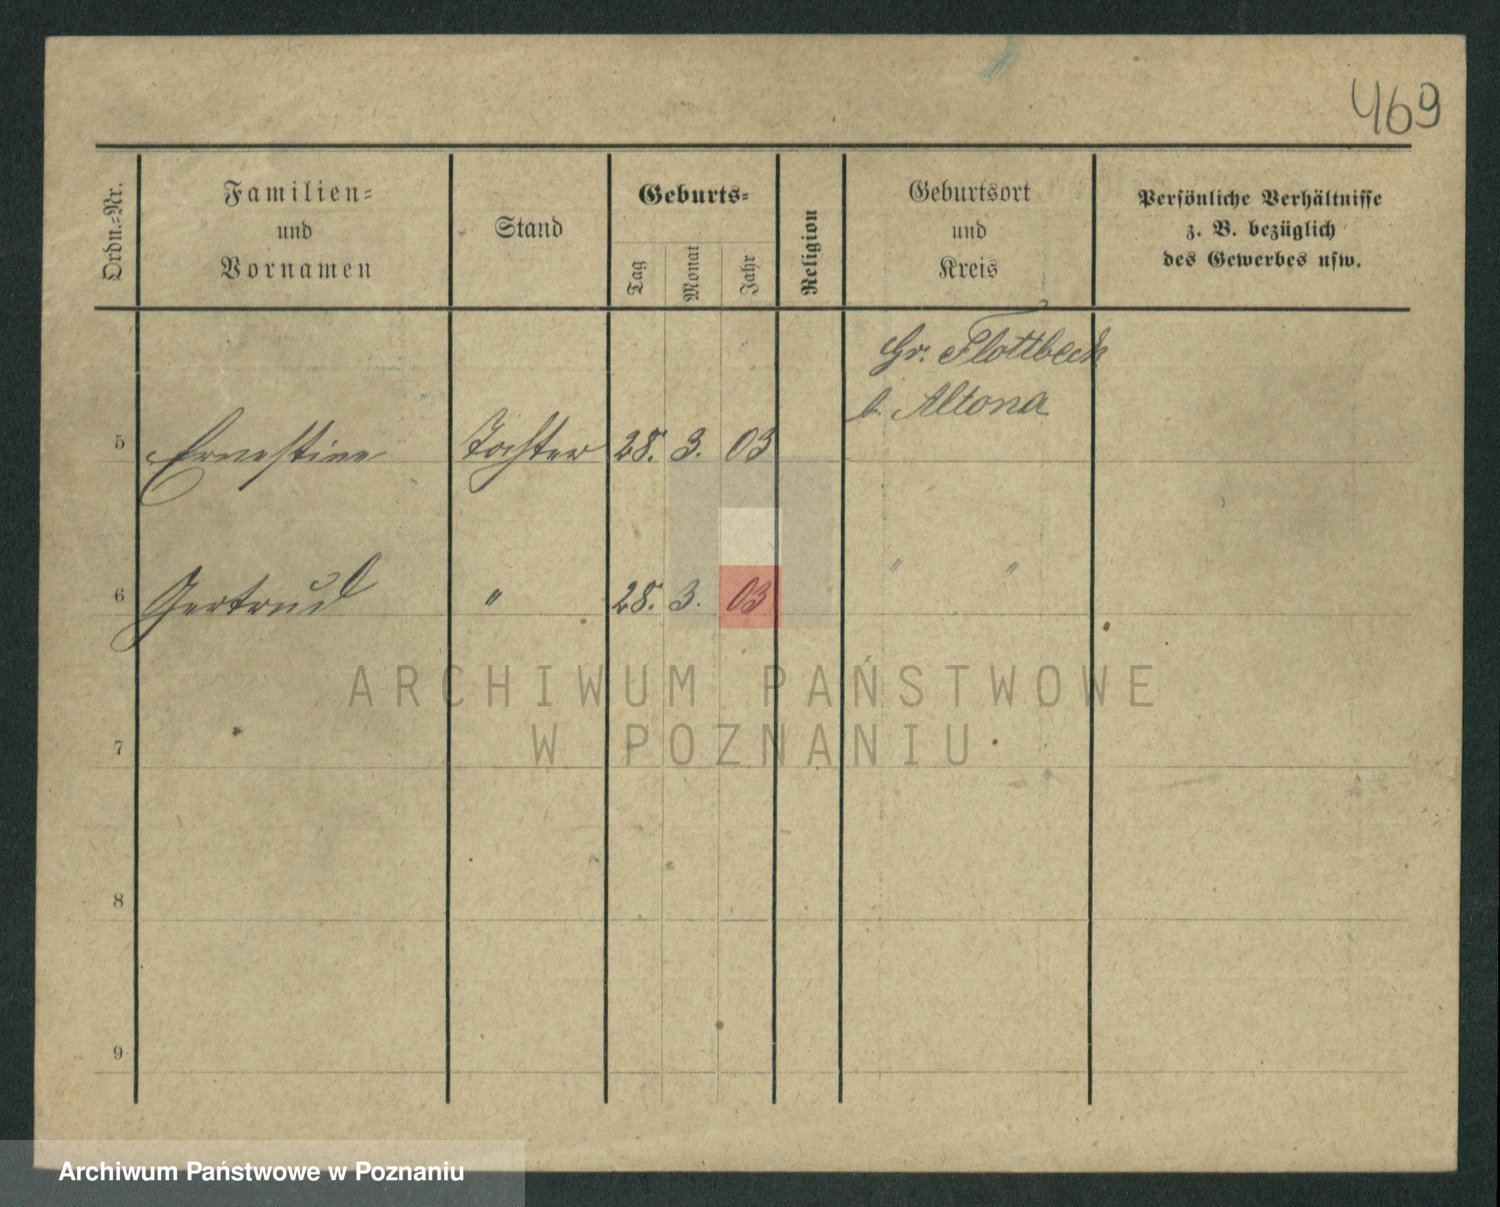 469
Ordn.-Nr.
Familien-
und
Vornamen
Stand
Geburts-
Tag
Monat
Jahr
Religion
Geburtsort
und
Kreis
Persönliche Verhältnisse
z. B. bezüglich
des Gewerbes usw.
Gr. Flottbeck
b. Altona
5 Ernestine Tochter 28. 3. 03
6 Gertrud " 28. 3. 03 " "
ARCHIWUM PAŃSTWOWE
W POZNANIU
7
8
9
Archiwum Państwowe w Poznaniu